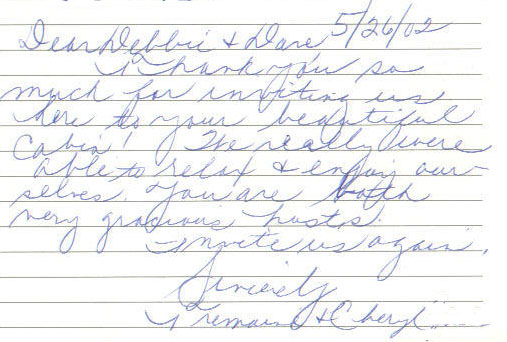 Dear Debbie & Dave, 5/26/02
Thank you so
much for inviting us
here to your beautiful
Cabin! We really were
able to relax & enjoy our-
selves. You are both
very gracious hosts.
Invite us again.
Sincerely
Tremaine & Cheryl